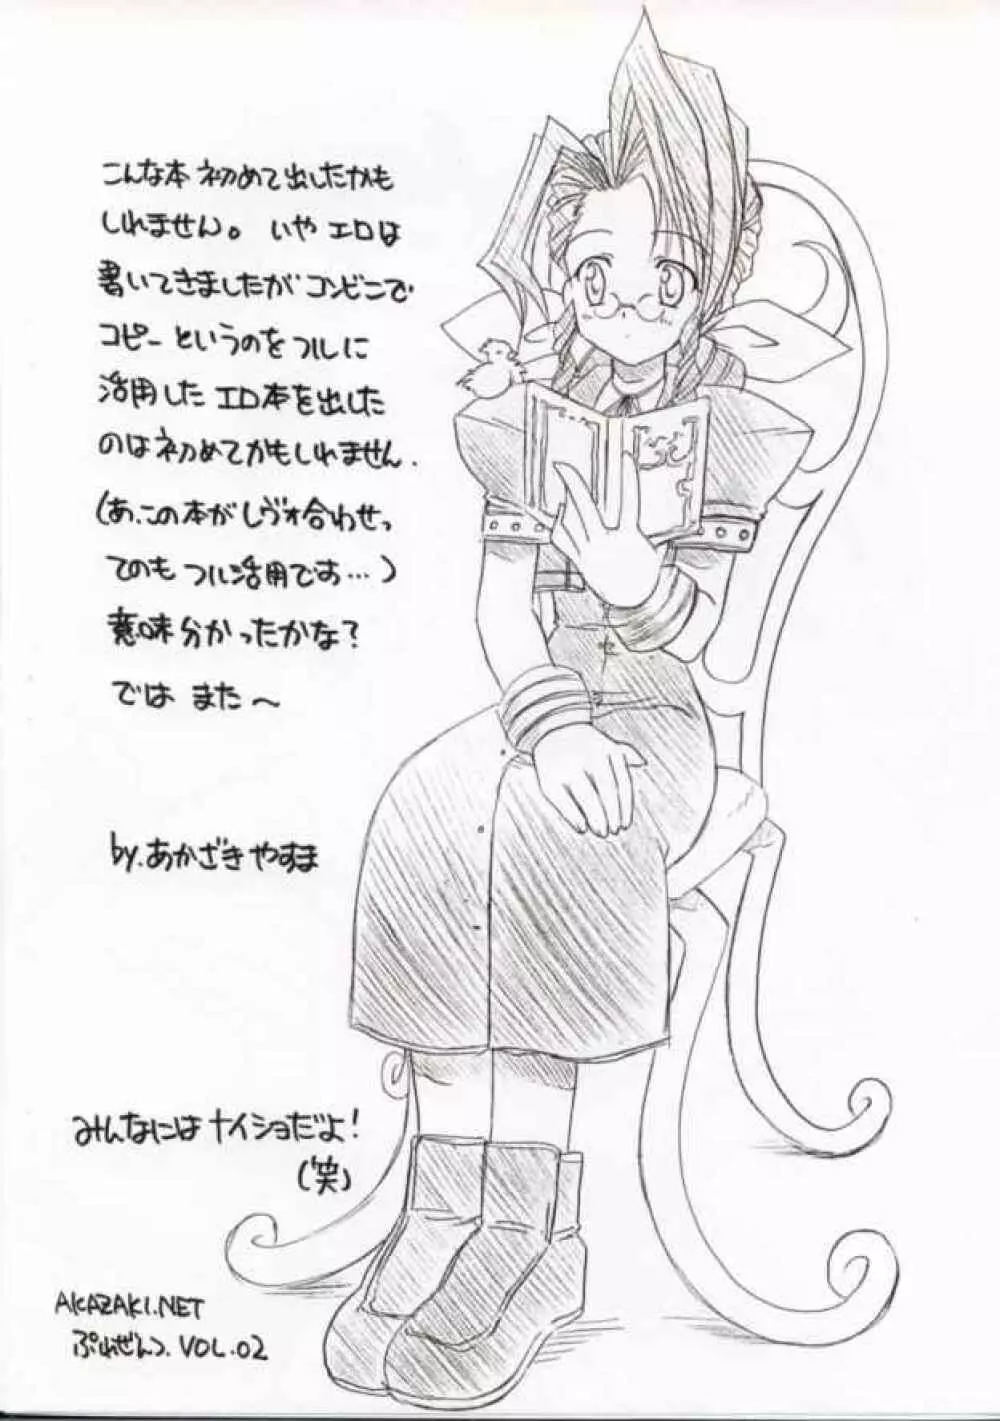 こんな本 初めて出したかも
しれません。 いや エロは
書いてきましたが コンビニで
コピー というのを フルに
活用した エロ本を出した
のは初めてかもしれません.
(あ、この本がレヴォ合わせっ
てのも フル活用です…)
意味分かったかな?
では また〜
by.あかざきやすま
みんなには ナイショだよ!
(笑)
AKAZAKI.NET
ぷれぜんつ. VOL.02